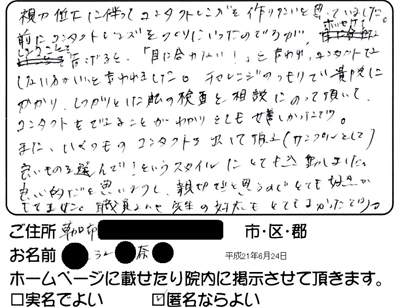 視力低下に伴ってコンタクトレンズを作りたいと思っていました。
前にコンタクトレンズをつくりにいったのですが、
と告げると、「目に合わない！」と言われ、コンタクトで
しない方がいいと言われました。チャレンジのつもりで貴院に
かかり、しっかりとした眼の検査と相談にのって頂いて、
コンタクトをできることがわかりとても嬉しかったです。
また、いくつものコンタクトを出して頂き(サンプルとして)
良いものを選んで！というスタイルにとても感動しました。
良い的だと思いますし、親切だと思うのでとても好感が
もてました。職員さんも先生の対応もとてもよかったです。
ご住所 草加市 市・区・郡
お名前 平成21年6月24日
ホームページに載せたり院内に掲示させて頂きます。
□実名でよい ☑匿名ならよい